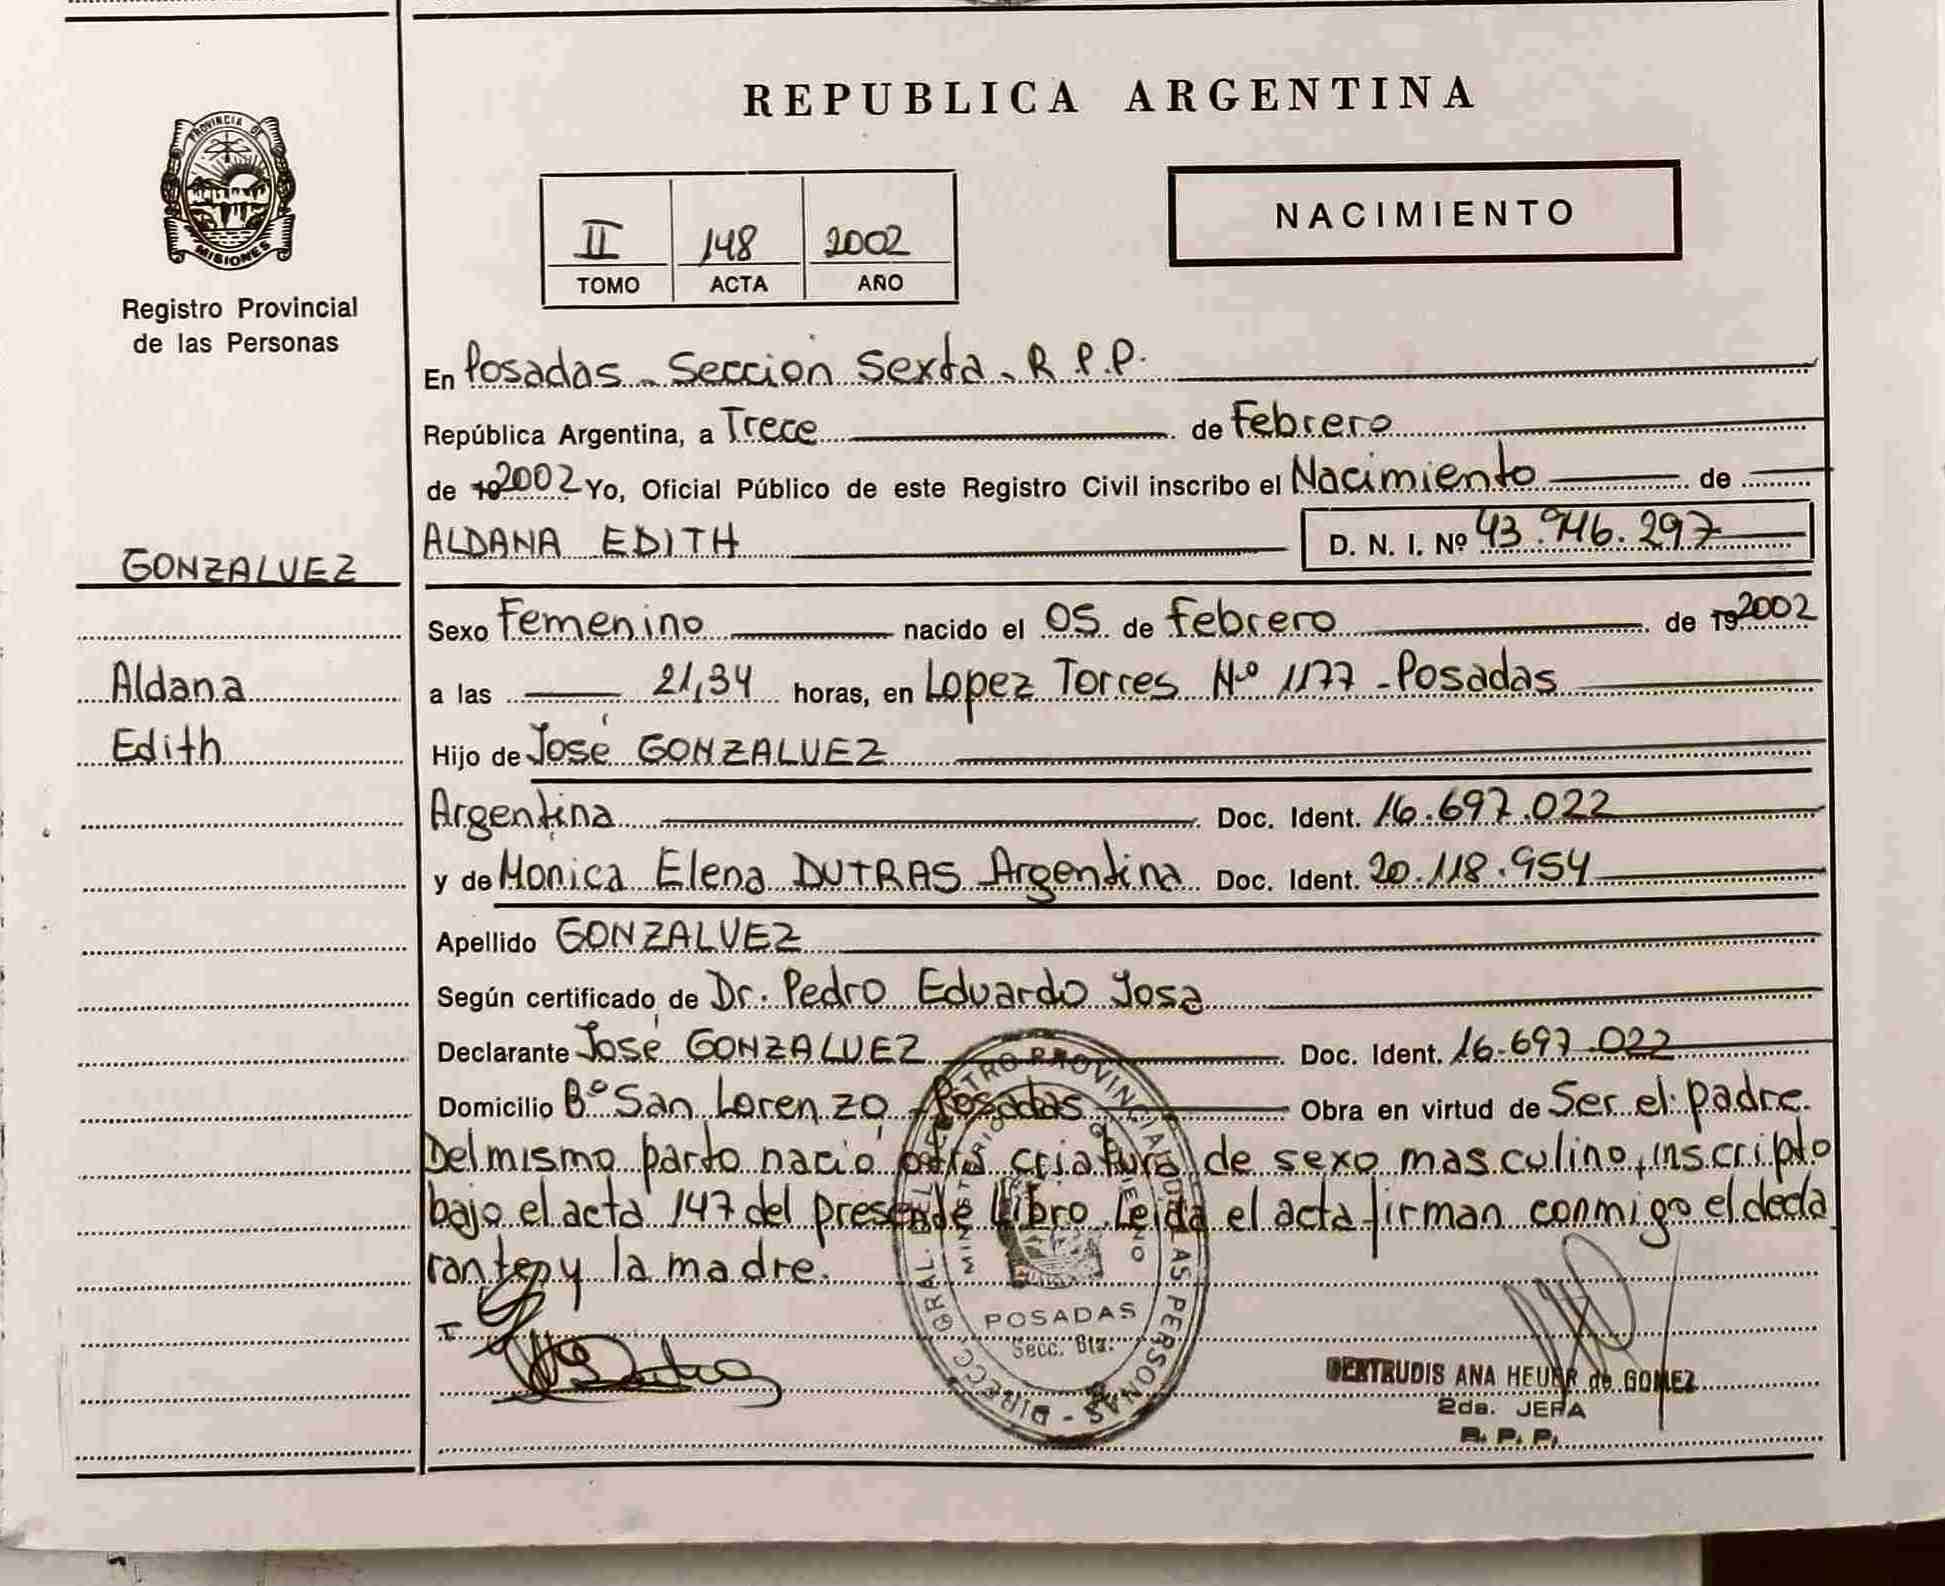 REPUBLICA ARGENTINA
PROVINCIA DE
MISIONES
Registro Provincial
de las Personas
NACIMIENTO
II 148 2002
TOMO ACTA AÑO
En Posadas - Sección Sexta - R.P.P.
República Argentina, a Trece de Febrero
de 19 2002 Yo, Oficial Público de este Registro Civil inscribo el Nacimiento de
ALDANA EDITH D. N. I. Nº 43.946.297
GONZALVEZ
Sexo Femenino nacido el 05 de Febrero de 19 2002
Aldana
a las 21,34 horas, en Lopez Torres Nº 1177 - Posadas
Edith
Hijo de José GONZALVEZ
Argentina Doc. Ident. 16.697.022
y de Monica Elena DUTRAS Argentina Doc. Ident. 20.118.954
Apellido GONZALVEZ
Según certificado de Dr. Pedro Eduardo Josa
Declarante José GONZALVEZ Doc. Ident. 16.697.022
Domicilio Bº San Lorenzo - Posadas Obra en virtud de Ser el padre.
Del mismo parto nació otra criatura de sexo masculino, inscripto
bajo el acta 147 del presente libro. Leida el acta firman conmigo el decla
rante y la madre.
DIRECC. GRAL. DEL REGISTRO PROVINCIAL DE LAS PERSONAS
MINISTERIO DE GOBIERNO
POSADAS
Secc. 6ta.
GERTRUDIS ANA HEUER de GOMEZ
2da. JEFA
R. P. P.